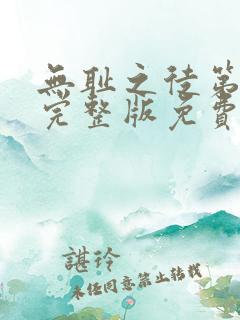 無耻之徒第
完整版免費
諶玲
未经同意禁止转载